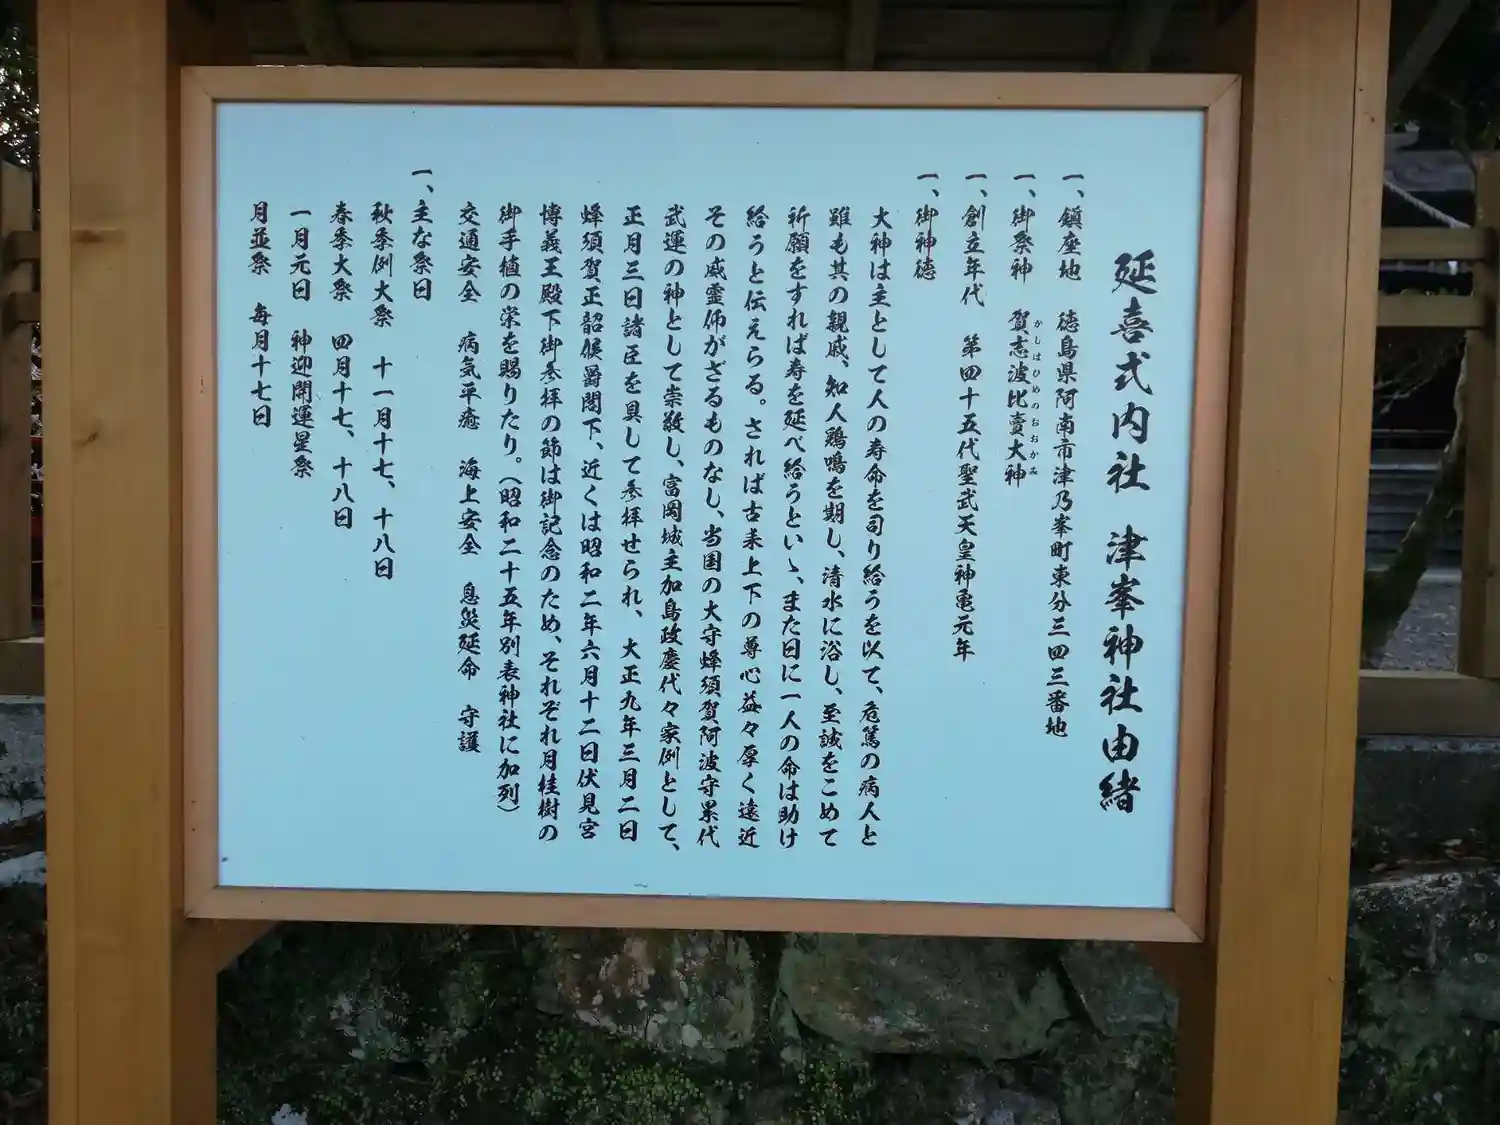 延喜式内社 津峯神社由緒
一、鎮座地 徳島県阿南市津乃峯町東分三四三番地
一、御祭神 賀志波比賣大神
かしはひめのおおかみ
一、創立年代 第四十五代聖武天皇神亀元年
一、御神徳
大神は主として人の寿命を司り給うを以て、危篤の病人と
雖も其の親戚、知人鶏鳴を期し、清水に浴し、至誠をこめて
祈願をすれば寿を延べ給うといゝ、また日に一人の命は助け
給うと伝えらる。されば古来上下の尊心益々厚く遠近
その威霊仰がざるものなし、当国の大守蜂須賀阿波守累代
武運の神として崇敬し、富岡城主加島政慶代々家例として、
正月三日諸臣を具して参拝せられ、大正九年三月二日
蜂須賀正韶候爵閣下、近くは昭和二年六月十二日伏見宮
博義王殿下御参拝の節は御記念のため、それぞれ月桂樹の
御手植の栄を賜りたり。（昭和二十五年別表神社に加列）
交通安全 病気平癒 海上安全 息災延命 守護
一、主な祭日
秋季例大祭 十一月十七、十八日
春季大祭 四月十七、十八日
一月元日 神迎開運星祭
月並祭 毎月十七日